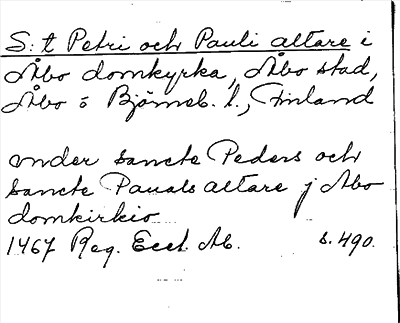 S:t Petri och Pauli altare i
Åbo domkyrka, Åbo stad,
Åbo o Björneb. l., Finland
vnder sancte Peders och
sancte Pauals altare j Abo
domkirkio
1467 Reg. Eccl. Ab. s. 490.